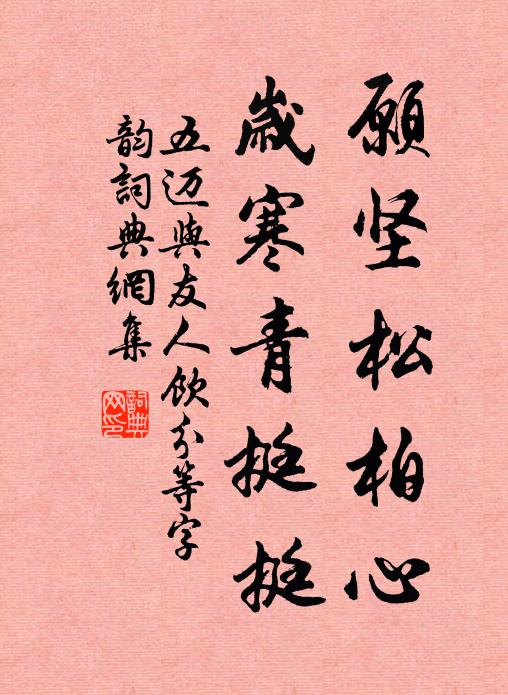 願坚松柏心
歲寒青挺挺
五迈與友人飲分等字
韵詞典網集
詞典
网印